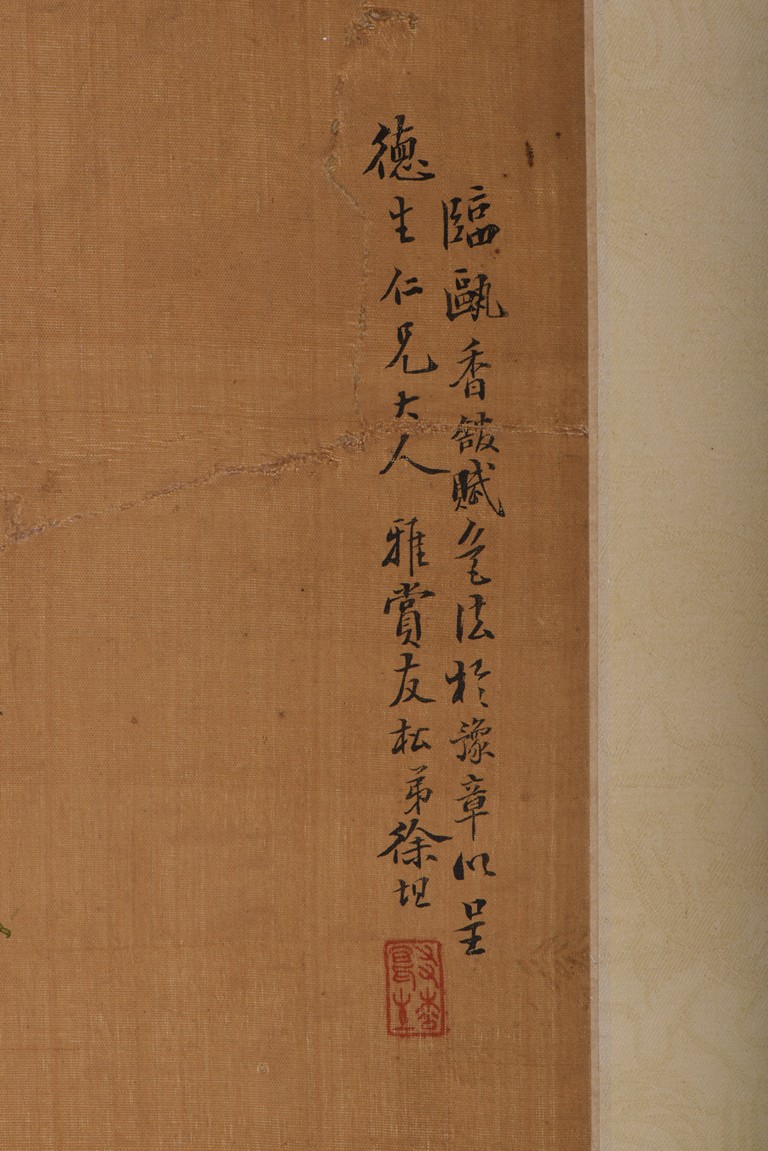 臨甌香館賦色法於豫章以呈
德生仁兄大人 雅賞友松弟徐坦